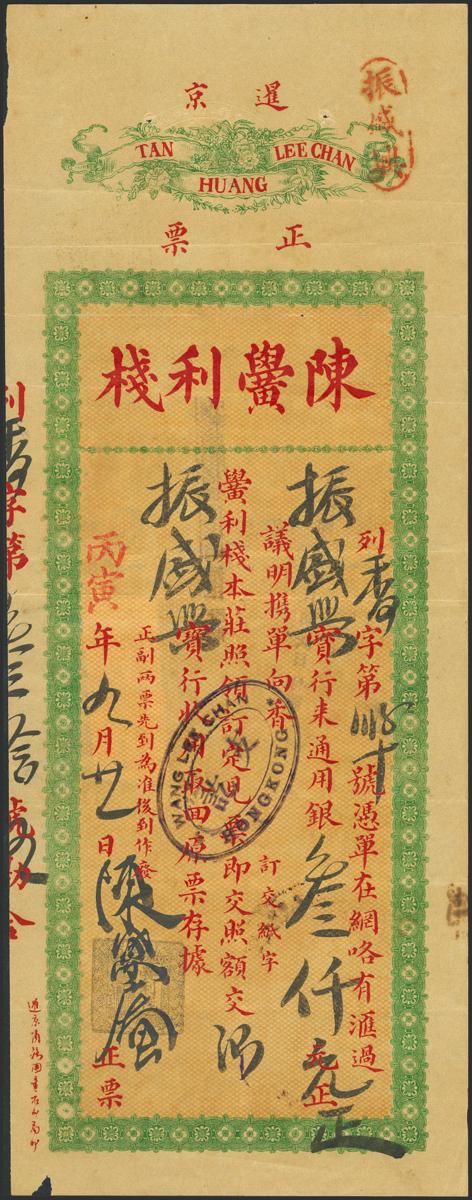 暹京
TAN HUANG LEE CHAN
正票
振盛
陳黌利棧
列香字第 號憑單在網咯有滙過
振盛興寶行来通用銀叁仟元正
議明携單向香
訂交紙字
黌利棧本莊照領訂定見票即交照額交
振盛興寶行收用取回房票存據
正副兩票先到為准後到作廢
丙寅年九月廿一日陳黌 正票
WANG LEE CHAN
HONGKONG
列香字第 叁拾 號